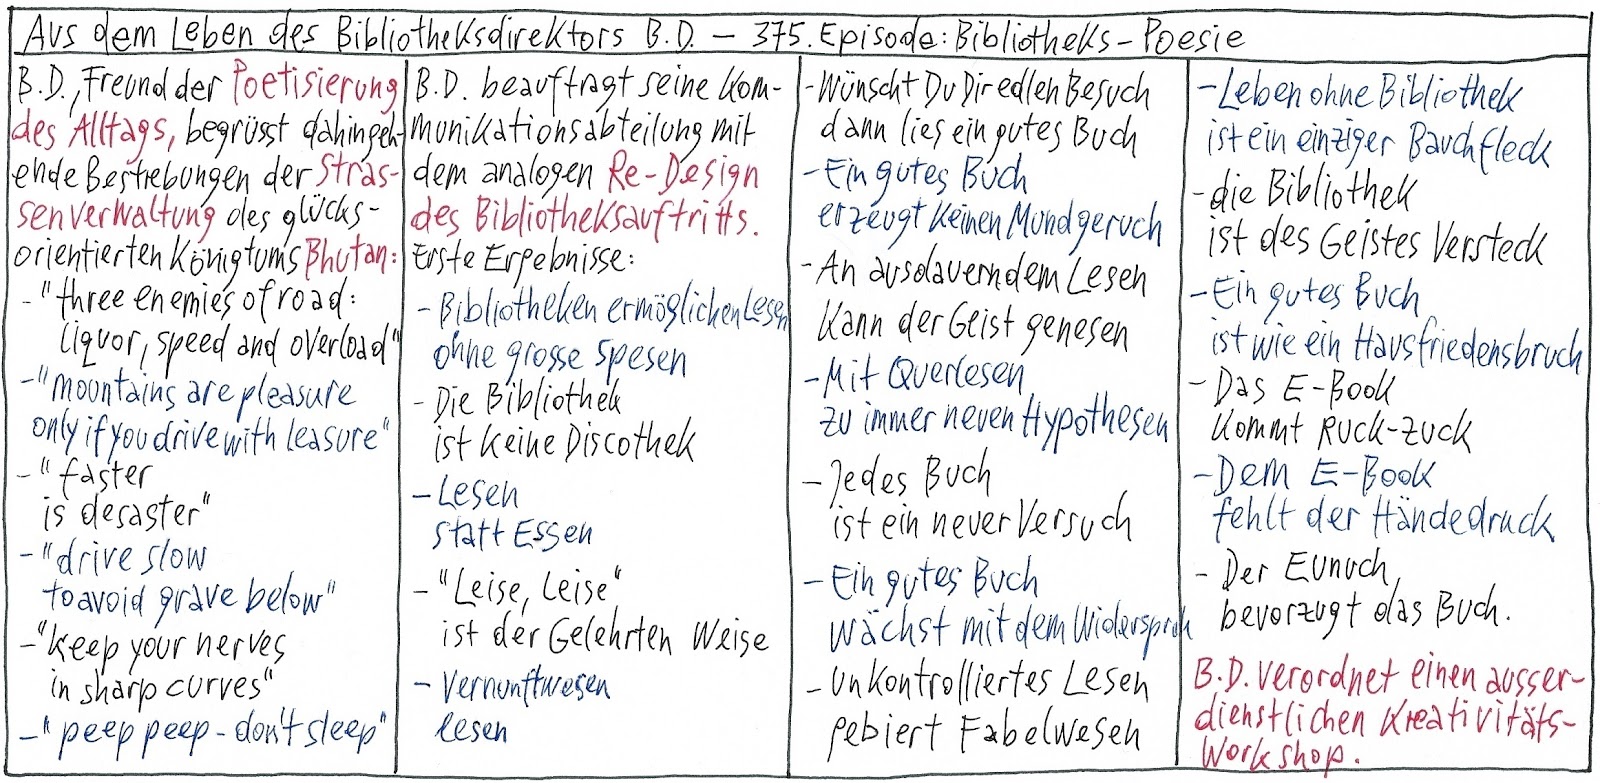 Aus dem Leben des Bibliotheksdirektors B.D. – 375. Episode: Bibliotheks-Poesie
B.D., Freund der Poetisierung
des Alltags, begrüsst dahingeh-
ende Bestrebungen der Stras-
senverwaltung des glücks-
orientierten Königtums Bhutan:
- "three enemies of road:
liquor, speed and overload"
- "mountains are pleasure
only if you drive with leasure"
- "faster
is desaster"
- "drive slow
to avoid grave below"
- "keep your nerves
in sharp curves"
- "peep peep - don't sleep"
B.D. beauftragt seine Kom-
munikationsabteilung mit
dem analogen Re-Design
des Bibliotheksauftritts.
Erste Ergebnisse:
- Bibliotheken ermöglichen Lesen
ohne grosse Spesen
- Die Bibliothek
ist keine Discothek
- Lesen
statt Essen
- "Leise, Leise"
ist der Gelehrten Weise
- Vernunftwesen
lesen
- Wünscht Du Dir edlen Besuch
dann lies ein gutes Buch
- Ein gutes Buch
erzeugt keinen Mundgeruch
- An ausdauerndem Lesen
kann der Geist genesen
- Mit Querlesen
zu immer neuen Hypothesen
- Jedes Buch
ist ein neuer Versuch
- Ein gutes Buch
wächst mit dem Widerspruch
- unkontrolliertes Lesen
gebiert Fabelwesen
- Leben ohne Bibliothek
ist ein einziger Bauchfleck
- die Bibliothek
ist des Geistes Versteck
- Ein gutes Buch
ist wie ein Hausfriedensbruch
- Das E-Book
kommt ruck-zuck
- Dem E-Book
fehlt der Händedruck
- Der Eunuch,
bevorzugt das Buch.
B.D. verordnet einen ausser-
dienstlichen Kreativitäts-
Workshop.